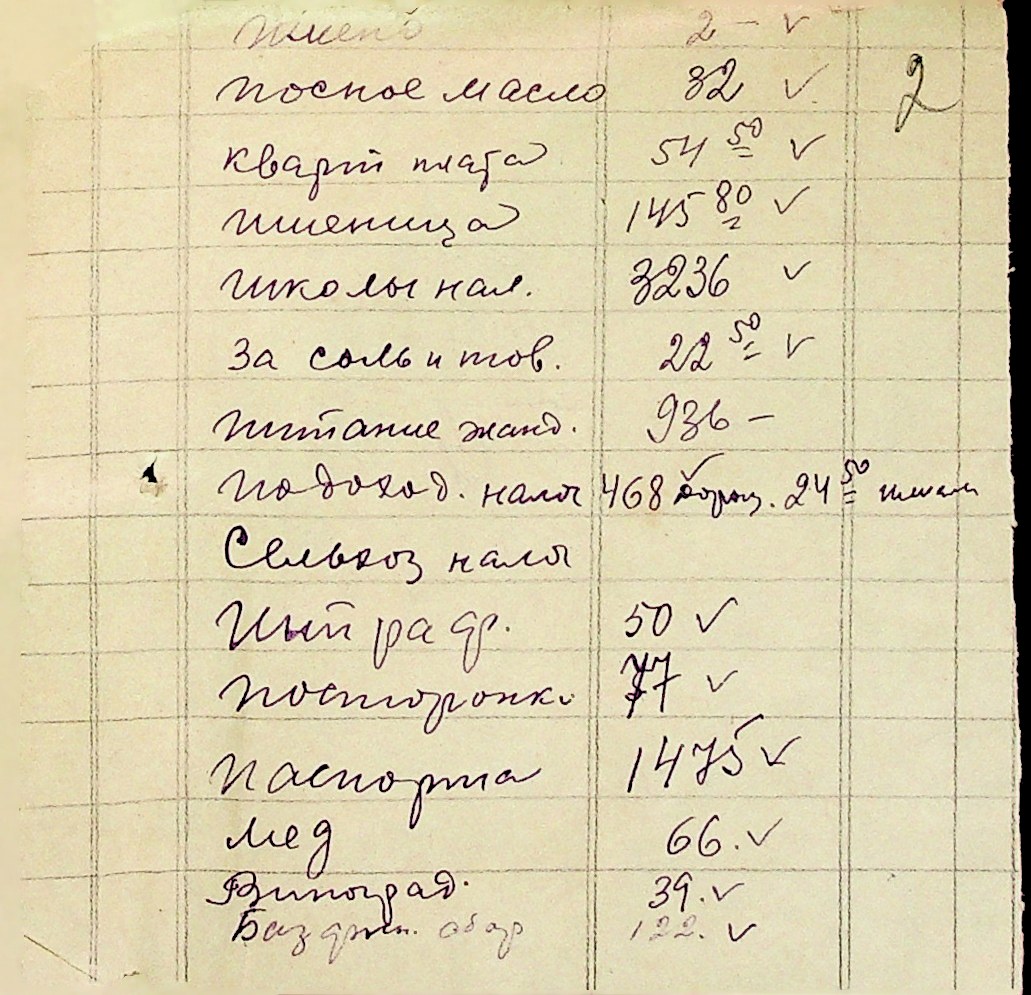 Пшено 2 – ✓
Постное масло 32 ✓ 2
Кварт плата 54 50 ✓
Пшеница 145 80 ✓
Школы нал. 3236 ✓
За соль и тов. 22 50 ✓
Питание жанд. 936 –
Подоход. налог 468 ✓ 24 50
Сельхоз налог
50 ✓
Посторонк. 77 ✓
Паспорта 1475 ✓
Мед 66. ✓
Виноград. 39. ✓
Баз 122. ✓